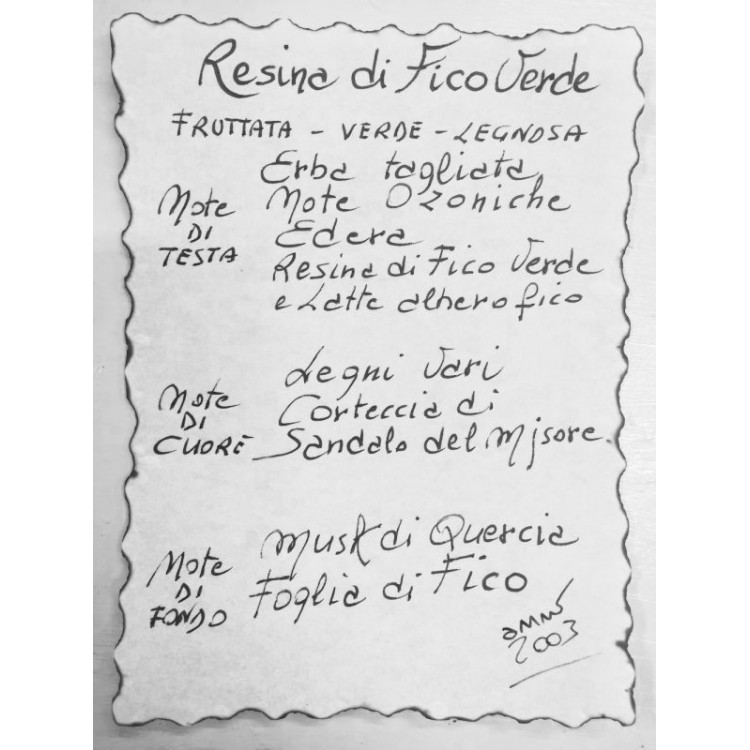 Resina di Fico Verde
FRUTTATA - VERDE - LEGNOSA
Erba tagliata
Note DI TESTA
Note Ozoniche
Edera
Resina di Fico Verde
e Latte albero fico
Legni Vari
Note DI CUORE
Corteccia di
Sandalo del Mjsore
Musk di Quercia
Note DI FONDO
Foglia di Fico
2003